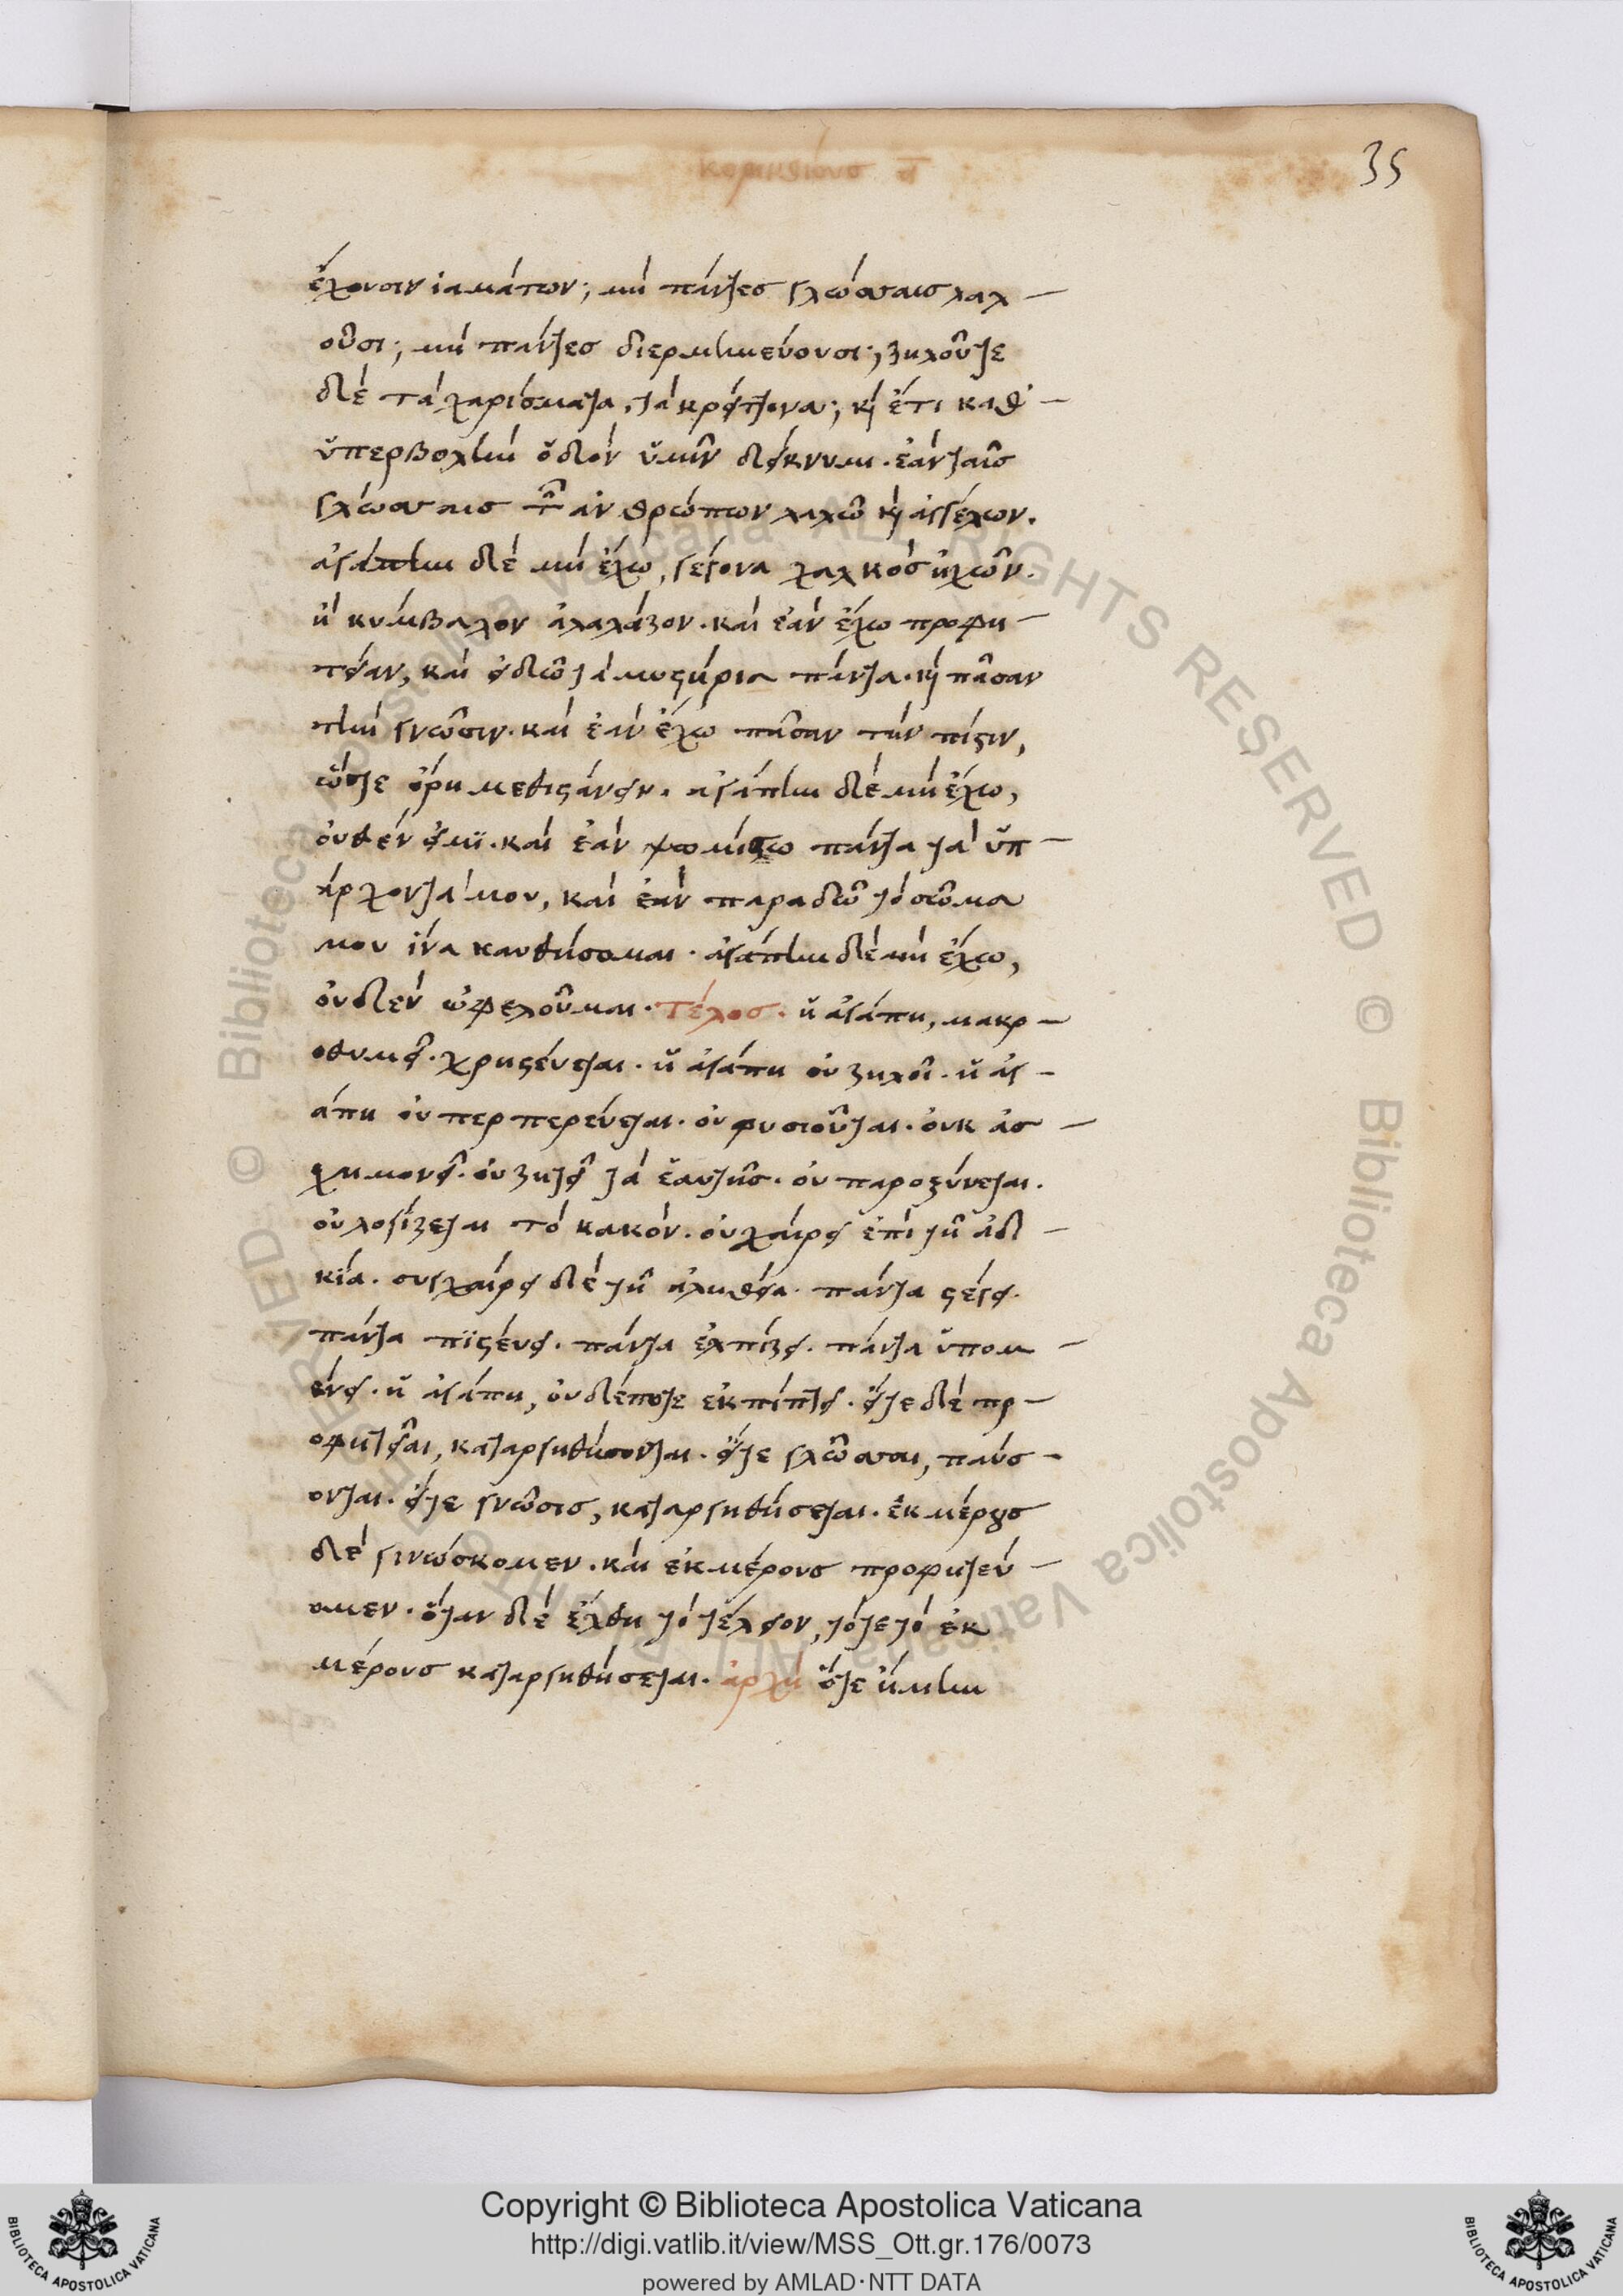 κορινθίους α
35
ἔχουσιν ἰαμάτων; μὴ πάντες γλώσσαις λαλ —
οῦσι; μὴ πάντες διερμηνεύουσι; ζηλοῦτε
δὲ τὰ χαρίσματα, τὰ κρείττονα; κὶ ἔτι καθ' —
ὑπερβολὴν ὁδὸν ὑμῖν δείκνυμι. ἐὰν ταῖς
γλώσσαις τῶν ἀνθρώπων λαλῶ κὶ ἀγγέλων.
ἀγάπην δὲ μὴ ἔχω, γέγονα χαλκὸς ἠχῶν.
ἢ κύμβαλον ἀλαλάζον. καὶ ἐὰν ἔχω προφη —
τείαν, καὶ εἰδῶ τὰ μυστήρια πάντα. κὶ πᾶσαν
τὴν γνῶσιν. καὶ ἐὰν ἔχω πᾶσαν τὴν πίστιν,
ὥστε ὄρη μεθιστάνειν. ἀγάπην δὲ μὴ ἔχω,
οὐθέν εἰμϊ. καὶ ἐὰν ψωμίσω πάντα τὰ ὑπ —
άρχοντά μου, καὶ ἐὰν παραδῶ τὸ σῶμα
μου ἵνα καυθήσομαι. ἀγάπην δὲ μὴ ἔχω,
οὐδὲν ὠφελοῦμαι. Τέλος. ἡ ἀγάπη, μακρ —
οθυμεῖ. χρηστεύεται. ἡ ἀγάπη οὐ ζηλοῖ. ἡ ἀγ —
άπη οὐ περπερεύεται. οὐ φυσιοῦται. οὐκ ἀσ —
χημονεῖ. οὐ ζητεῖ τὰ ἑαυτῆς. οὐ παροξύνεται.
οὐ λογίζεται τὸ κακόν. οὐ χαίρει ἐπὶ τῆ ἀδι —
κία. συγχαίρει δὲ τῆ ἀληθεία. πάντα στέγει.
πάντα πϊστεύει. πάντα ἐλπίζει. πάντα ὑπομ —
ένει. ἡ ἀγάπη, οὐδέποτε ἐκπίπτει. εἴτε δὲ πρ —
οφητεῖαι, καταργηθήσονται. εἴτε γλῶσσαι, παύσ —
ονται. εἴτε γνῶσις, καταργηθήσεται. ἐκ μέρους
δὲ γινώσκομεν. καὶ ἐκ μέρους προφητεύ —
ομεν. ὅταν δὲ ἔλθη τὸ τέλειον, τότε τὸ ἐκ
μέρους καταργηθήσεται. ἀρχὴ ὅτε ἤμην
Copyright © Biblioteca Apostolica Vaticana
http://digi.vatlib.it/view/MSS_Ott.gr.176/0073
powered by AMLAD·NTT DATA
BIBLIOTECA APOSTOLICA VATICANA
BIBLIOTECA APOSTOLICA VATICANA
© Biblioteca Apostolica Vaticana ALL RIGHTS RESERVED © Biblioteca Apostolica Vaticana ALL RIGHTS RESERVED